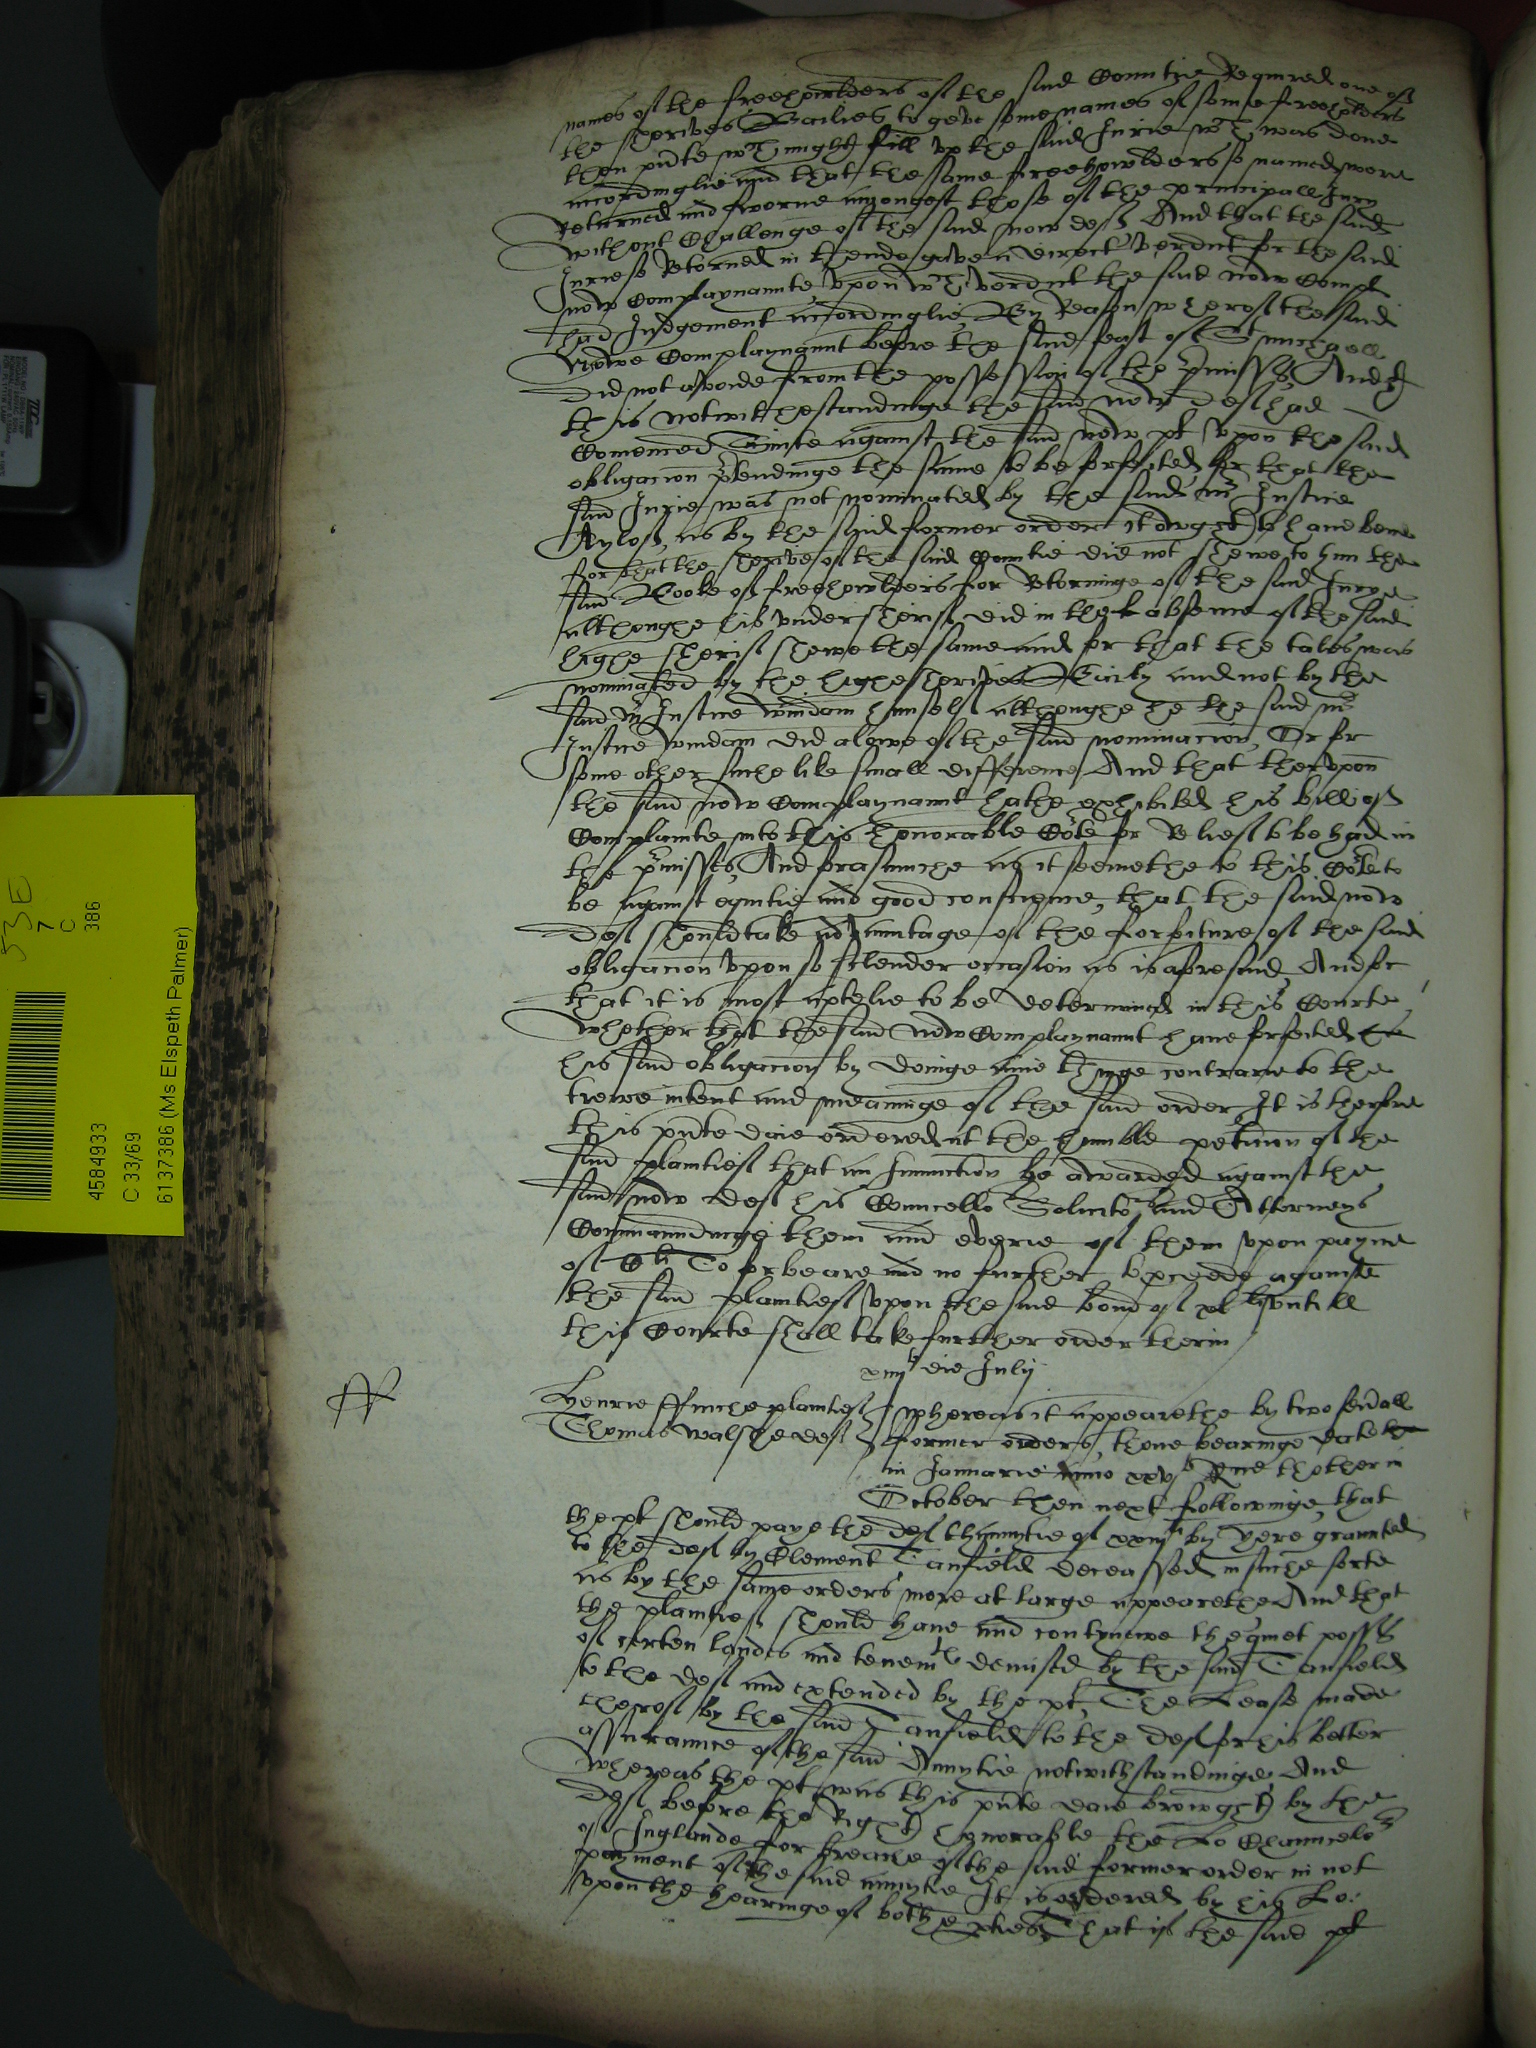 names of the freehowlders of the said Countie Required one of
the sherives Bailies to geve some names of some freeholders
then pnte wch might fill vp the said Iurie wch was done
accordinglie and that the same freehowlders so named were
Returned and sworne amongest those of the principall Iury
without Challenge of the said now def And that the said
Iurie so Retorned in thende gave a direct verdict for the said
now Complaynannte, vpon wch verdict the said now Compl
had Iudgement accordinglie, By Reason wherof the said
nowe Complaynannt before the said feast of St michaell
did not avoide from the possession of the pmisses, And
this notwithestandinge the said now def had
Comenced Suite against the said now pl vpon the said
obligacion ptendinge the same to be forfeited for that the
said Iurie was not nominated by the said mr Iustice
Ayloff, as by the said former order it owght to have bene
for that the sherive of the said Countie did not shewe to him the
said Booke of freehowlders for Retorninge of the said Iurye
althoughe his vndersherif did in the absence of the said
highe sherif shewe the same and for that the tales was
nominated by the highe sherives Baily and not by the
said mr Iustice windam himself althoughe he the said mr
Iustice windam did alowe of the said nominacion, Or for
some other suche like small difference, And that thervpon
the said now Complaynannt hathe exhibited his bill of
Complainte into this honorable Cote for Relief to be had in
the pmisses, And forasmuche as it seemethe to this Cote to
be against equitie and good conscience, that the said now
Def should take advantage of the forfeiture of the said
obligacion vpon so slender occasion as is aforesaid, And for
that it is most aptelie to be determined in this Courte
whether that the said now Complaynannt have forfeited
his said obligacion by doinge anie thinge contrarie to the
trewe intent and meaninge of the said order It is therfore
this pnte daie ordered at the humble peticion of the
said plaintief that an Iniunction be awarded against the
said now def his Councello Solicitors and Attorneys
Commaundinge them and everie of them vpon payne
of Cli To forbeare and no further to proceede againste
the said plaintief vpon the said bond of xl li vntill
this Courte shall take further order therin
xiiijto die Iulij
Henrie ffinche plaintief
Thomas walshe def
whereas it appearethe by two seuall
former orders, thone bearinge date
in Ianuarie Anno xxvto Rne thother in
October then next followinge, that
the pl should paye the def thannuitie of xxiiijli by yere graunted
to the def by Clement Tanfield deceassed in suche sorte
as by the same orders more at large appearethe And that
the plaintief should have and contynewe the quiet posses
of certen landes and tenemts demised by the said Tanfield
to the def and extended by the pl, The Lease made
therof by the said Tanfield to the def for his better
assuraunce of the said Annytie notwithstandinge And
whereas the pl was this pnte daie browght by the
def before the Right honorable the Lo Chauncelor
of Inglande for breache of the said former order in not
payment of the said annytie It is ordered by his Lo:
vpon the hearinge of bothe pties That if the said pl
4584933
C 33/69
6137386 (Ms Elspeth Palmer)
53E
7
C
386